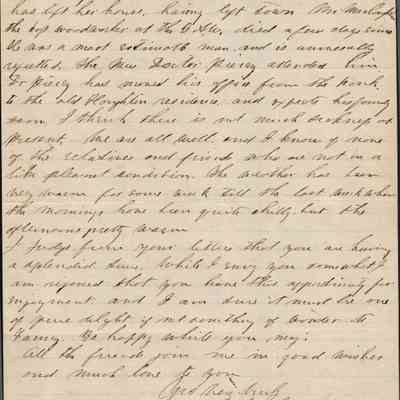 has left her house, having left town. Mr.
the top woodworker at the died a few days since
He was a most estimable man, and is universally
regretted. The New Doctor Piercy attended him.
Dr Piercy has moved his office from the
to the old Houghton residence, and expects his family
soon. I think there is not much sickness at
present. We are all well, and I know of none
of the relatives and friends who are not in a
like pleasant condition. The weather has been
very warm for some week till the last week when
the mornings have been quite chilly, but the
afternoons pretty warm
I judge from your letters that you are having
a splendid time. While I envy you somewhat, I
am rejoiced that you have this opportunity for
enjoyment and I am sure it must be one
of pure delight if not something of wonder to
Fanny. Be happy while you may.
All the friends join me in good wishes
and much love to you